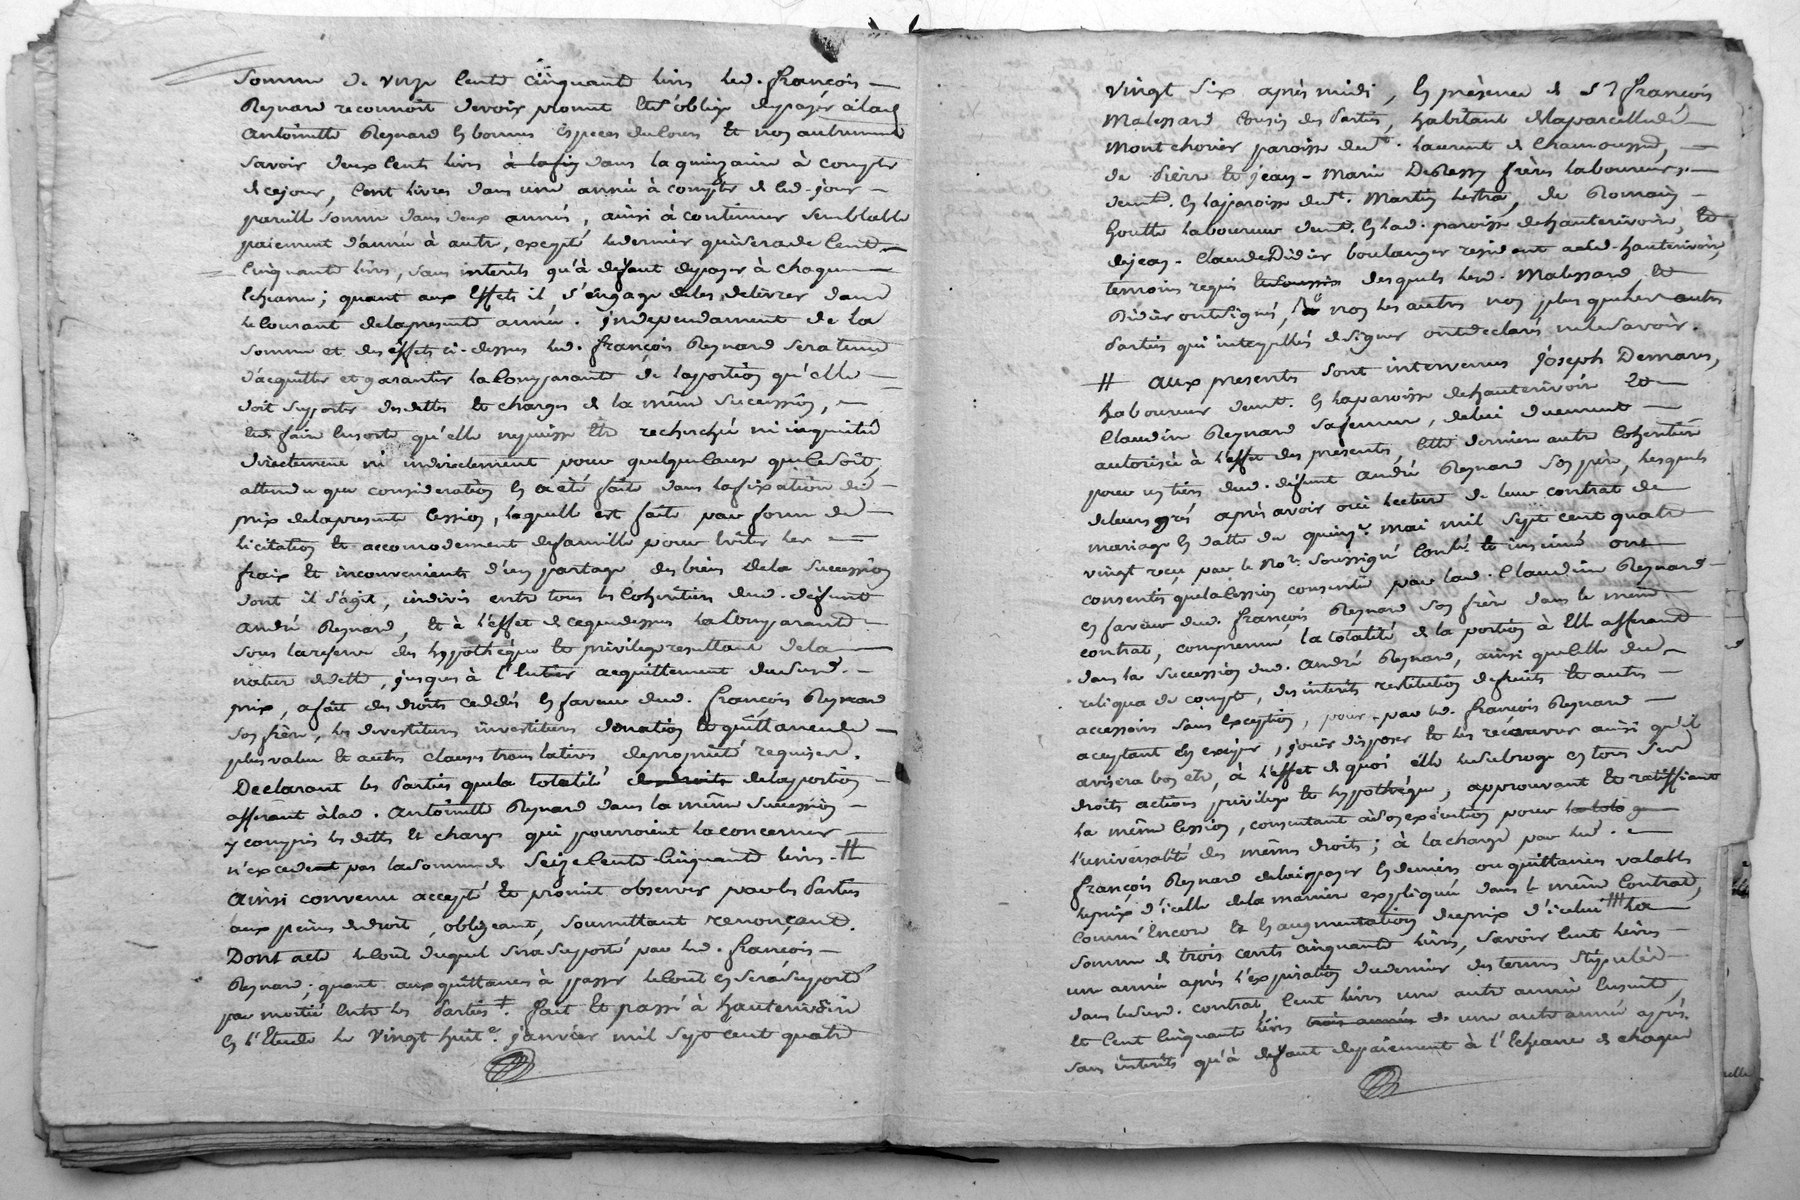 Somme de onze Cents cinquante livres led. françois
Reynard reconnoit devoir promet et s'oblige de payer à lad.
Antoinette Reynard en bonnes especes de Cours et non autrement
Savoir deux Cent livres à la fin dans la quinzaine à compter
de ce jour, Cent Livres dans une année à compter de ced. jour
pareille Somme dans deux années, ainsi à continuer semblable
paiement d'année à autre, excepté le dernier qui sera de Cent
Cinquante livres, sans interets qu'à defaut de payer à chaque
Echeance; quant aux Effets il s'engage de les delivrer dans
le Courant de la presente année. Independament de la
Somme et des effets ci-dessus led. françois Reynard sera tenu
d'acquitter et garantir la Comparante de la portion qu'elle
doit supporter des dettes et charges de la même Succession,
et de faire Ensorte qu'elle ne puisse être recherchée ni inquiétée
directement ni indirectement pour quelque Cause que Ce Soit,
attendu que consideration en a été faite dans la fixation du
prix de la presente Cession, laquelle est faite par forme de
licitation et accomodement de famille pour Eviter les
frais et inconvenients d'un partage des biens de la Succession
dont il s'agit, indivis entre tous les Coheritiers dud. defunt
André Reynard, et à l'effet de ce que dessus la Comparante
Sous la reserve des hypothéque et privilege resultant de la
nature de dette, jusques à l'Entier acquittement du Susd.
prix, a fait des droits cedés en faveur dud. françois Reynard
Son frère, les devestitures investitures donation et quittance de
plus value et autres clauses translatives de propriété requises.
Declarant les Parties que la totalité des droits de la portion
afferant à lad. Antoinette Reynard dans la même Succession
y compris les dettes et charges qui pourroient la concerner
n'excedent pas la Somme de Seize Cents Cinquante livres. #
Ainsi convenu accepté et promit observer par les Parties
aux peines de droit, obligeant, soumettant renonçant.
Dont acte le Cout duquel sera Supporté par led. françois
Reynard; quant aux quittances à passer le Cout en sera Supporté
par moitié Entre les Parties ‡. fait et passé à hauterivoire
En l'Etude le Vingt huit e. janvier mil Sept cent quatre
Vingt Six après midi, En présence de Sr françois
Malessard Cousin des Parties, habitant de la parcelle de
Montchorier paroisse de St. Laurent de Chamousset,
de Pierre et Jean-Marie DeRessy frères laboureurs
demt. En la paroisse de St. Martin Lestra, de Romain
Goutte laboureur demt. En lad. paroisse de hauterivoire, et
de jean-Claude Didier boulanger residant aud. hauterivoire,
temoins requis et Soussis desquels led. Malessard et
Didier ont Signés, et non les autres non plus que les autres
Parties qui interpellés de Signer ont declarés ne le Savoir.
# Aux presents Sont intervenus Joseph Demars,
Laboureur demt. En la paroisse de hauterivoire et
Claudine Reynard Sa femme, de lui duement
autorisée à l'effet des présentes, Cette derniere autre Coheritiere
pour un tiers dud. défunt André Reynard Son père, lesquels
de leurs grés après avoir oui lecture de leur contrat de
mariage En datte du quinz.e mai mil Sept cent quatre
vingt reçu par le No.re Soussigné Contrôlé et insinué ont
consentis que la Cession consentie par lad. Claudine Reynard
En faveur dud. françois Reynard Son frère dans le même
contrat, comprenne la totalité de la portion à Elle afferant
dans la Succession dud. André Reynard, ainsi que Celle du
reliqua de compte, des interets restitution de fruits et autres
accessoires sans exception, pour par led. françois Reynard
acceptant En exiger, jouir disposer et les recouvrer ainsi qu'il
avisera bon etre, à l'effet de quoi elle le Subroge En tous Ses
droits actions privilege et hypothéque, approuvant et ratiffiant
la même Cession, consentant à Son exécution pour la totale
l'universalité des mêmes droits; à la charge par led.
françois Reynard de lui payer En deniers ou quittances valables
le prix d'icelle de la maniere expliquée dans le même Contrat,
Comm' Encore et En augmentation du prix d'icelui la
Somme de trois cents cinquante livres, Savoir Cent livres
une année après l'expiration du dernier des termes Stipulés
dans le Susd. contrat, Cent livres une autre année Ensuite,
et Cent Cinquante livres trois années de une autre année après,
sans interets qu'à defaut de paiement à l'Echeance de chaque